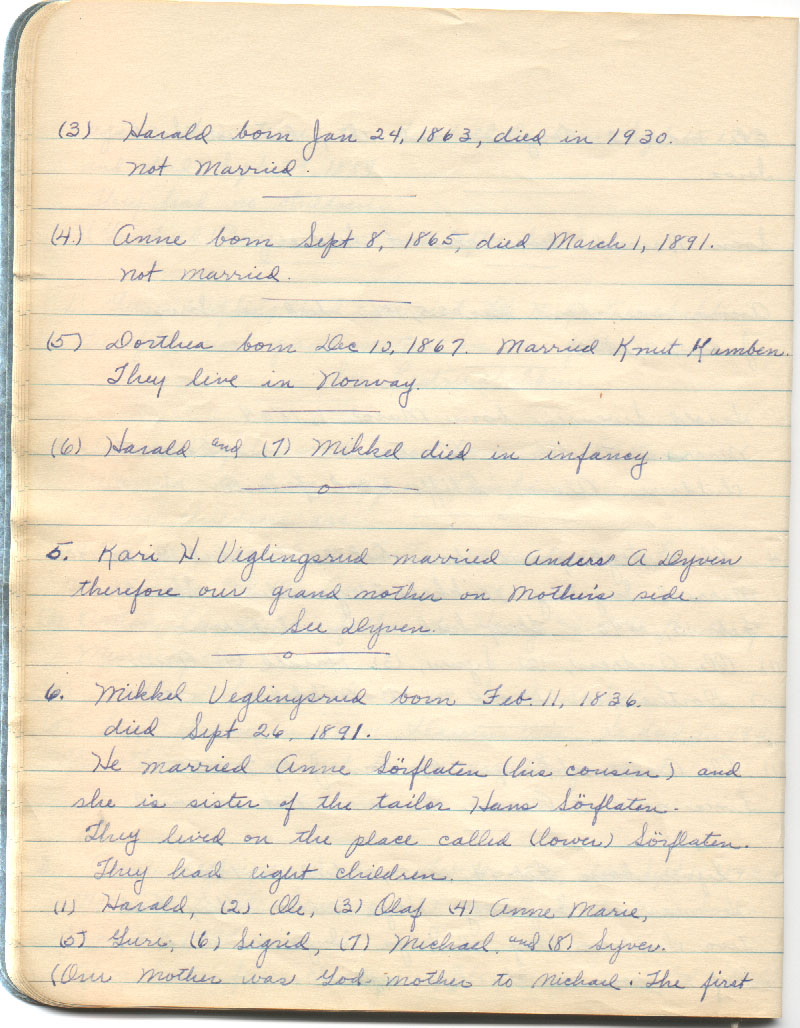 (3) Harald born Jan 24, 1863, died in 1930.
not Married.
(4.) Anne born Sept 8, 1865, died March 1, 1891.
not married.
(5) Dorthea born Dec 12, 1867. Married Knut Kamben.
They live in Norway.
(6) Harald and (7) Mikkel died in infancy.
5. Kari H. Veglingsrud married Anders A Dyven
therefore our grand mother on Mother's side.
See Dyven.
6. Mikkel Veglingsrud born Feb. 11, 1836.
died Sept 26, 1891.
He married Anne Sörflaten (his cousin) and
she is sister of the tailor Hans Sörflaten.
They lived on the place called (lower) Sörflaten.
They had eight children.
(1) Harald, (2) Ole, (3) Olaf (4) Anne Marie,
(5) Guri, (6) Sigrid, (7) Michael, and (8) Syver.
(Our Mother was God-mother to Michael. The first